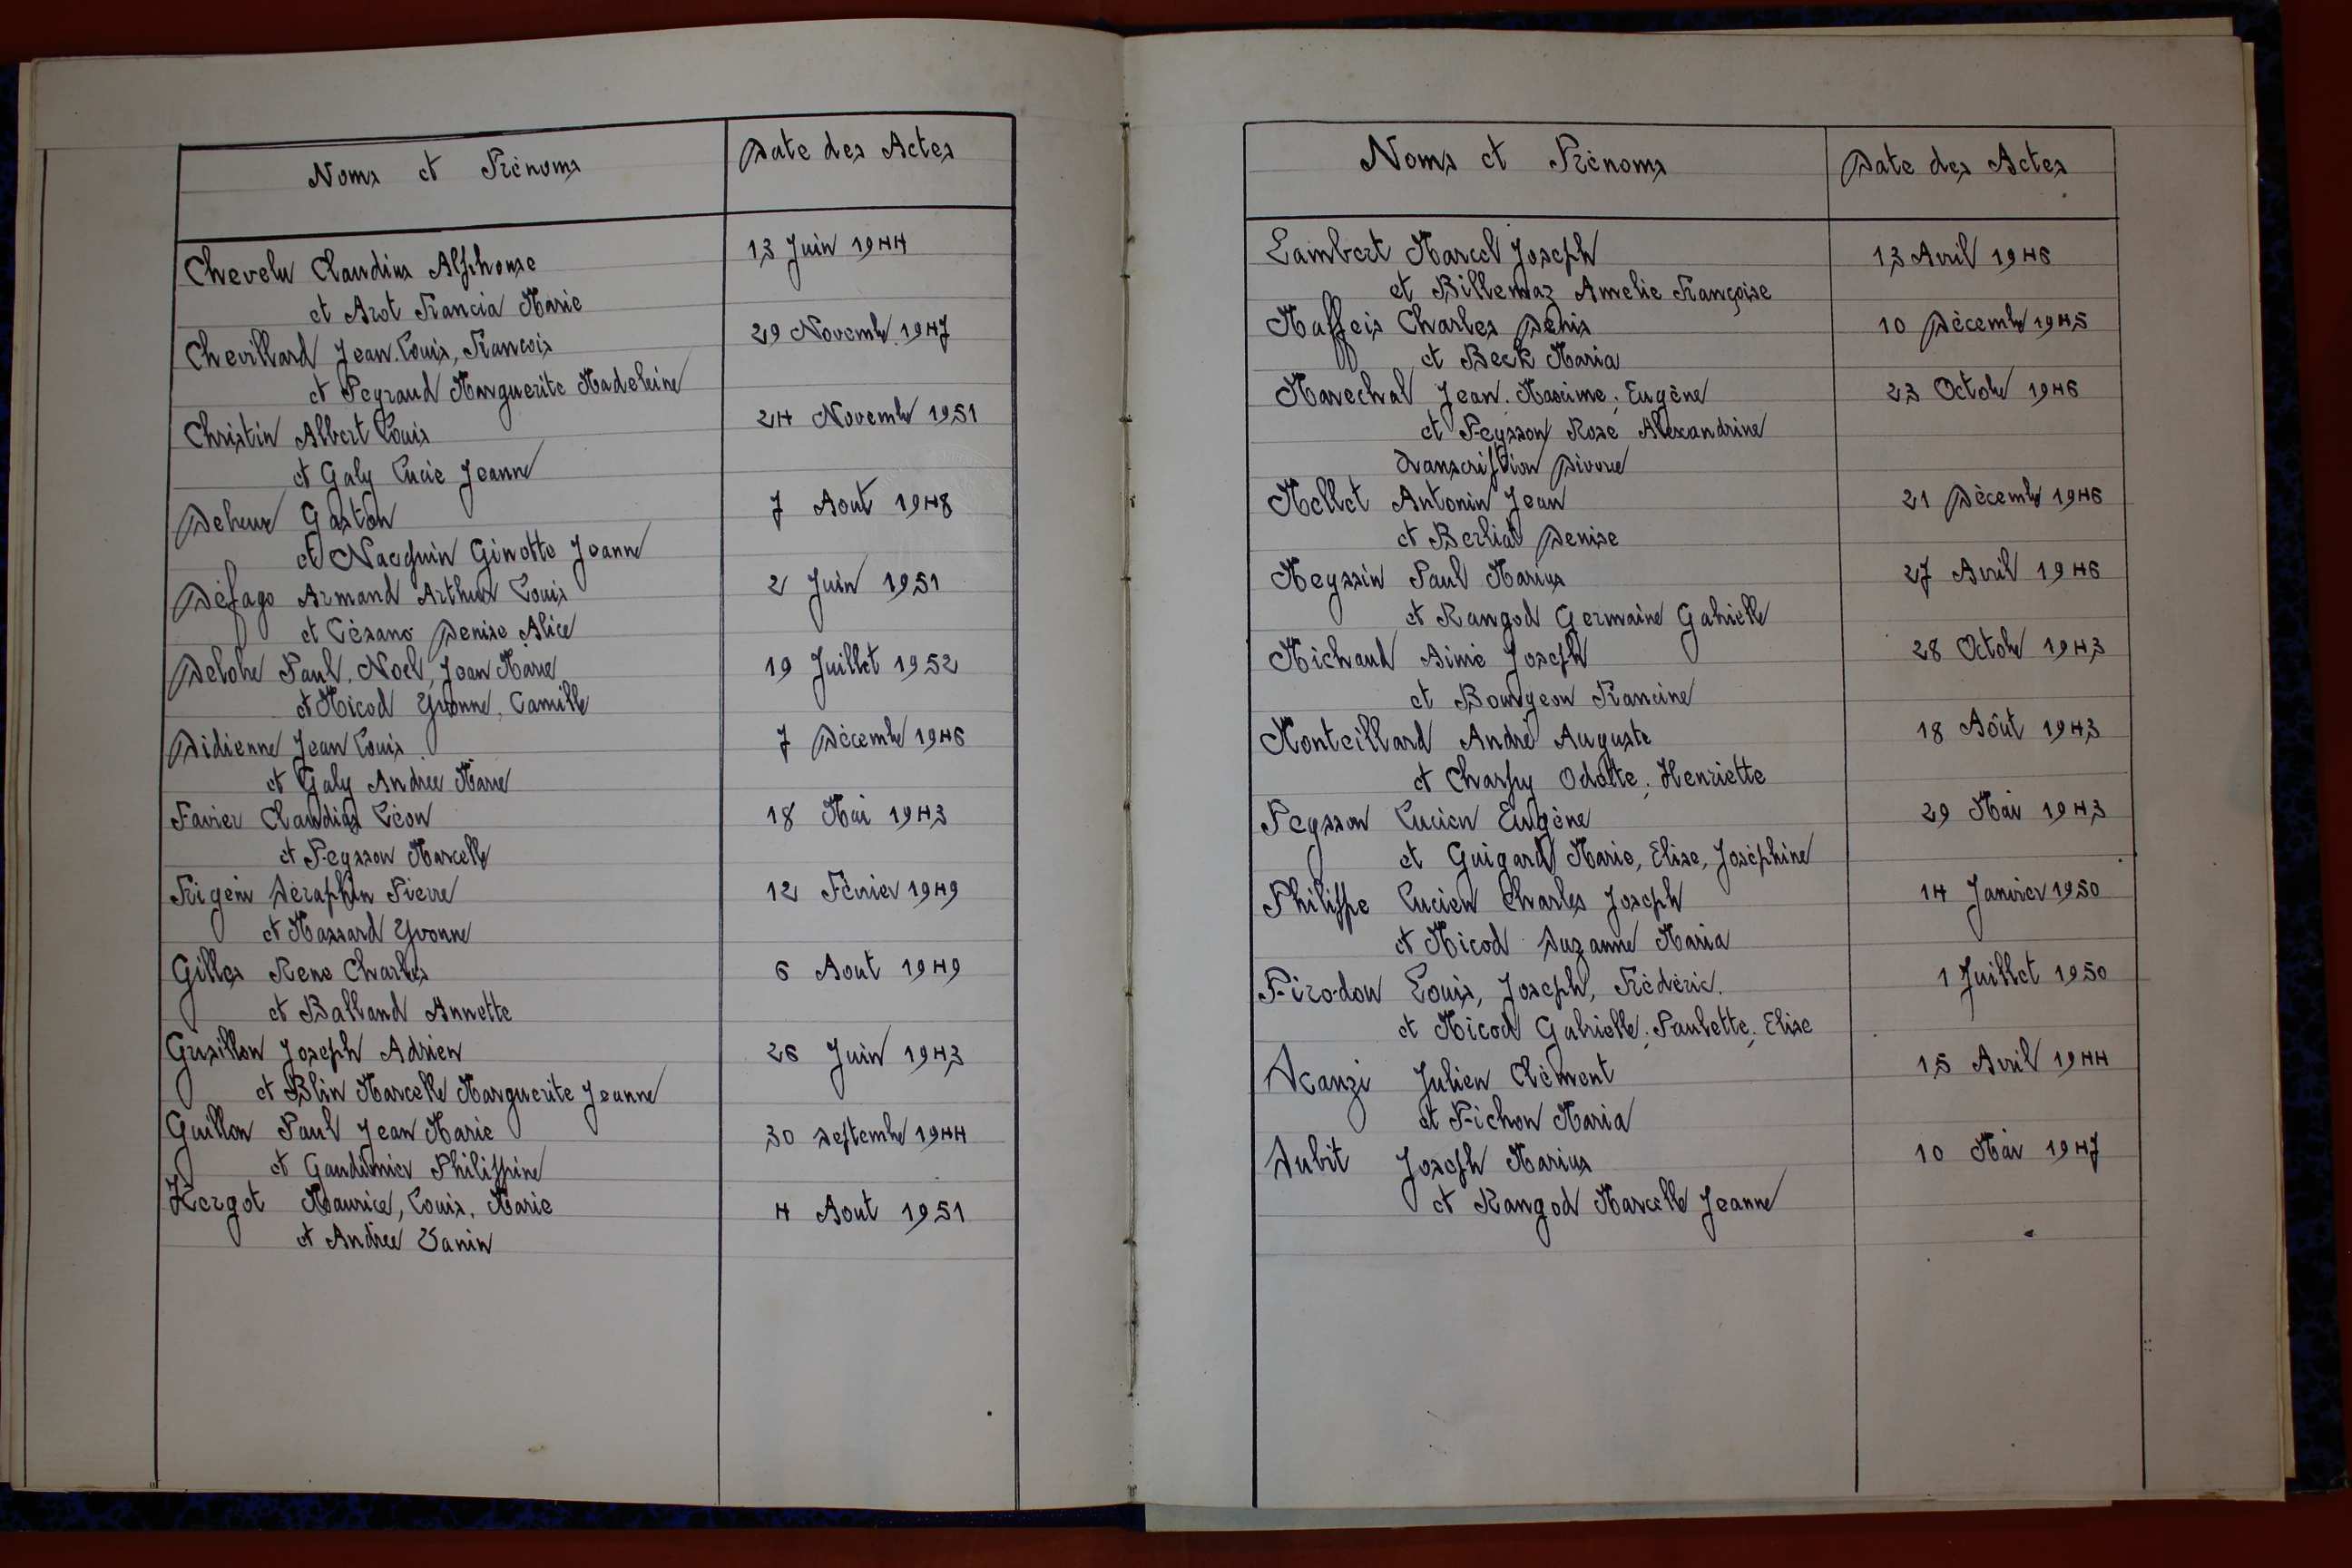 Noms et Prénoms
Date des Actes
Chevelu Claudius Alphonse
13 Juin 1944
et Arot Francia Marie
Chevillard Jean.Louis, Francois
29 Novembre 1947
et Peyraud Marguerite Madeleine
Christin Albert Louis
24 Novembre 1951
et Galy Lucie Jeanne
Deheux Gaston
7 Aout 1948
et Nacquin Ginette Jeanne
Défago Armand Arthur Louis
2 Juin 1951
et Césano Denise Alice
Delobe Paul, Noel, Jean Marie
19 Juillet 1952
et Micod Yvonne, Camille
Didienne Jean Louis
7 Décembre 1946
et Galy Andrée Marie
Favier Claudius Léon
18 Mai 1943
et Peysson Marcelle
Frigeni Séraphin Pierre
12 Février 1949
et Massard Yvonne
Gilles Rene Charles
6 Aout 1949
et Balland Annette
Grusillon Joseph Adrien
26 Juin 1943
et Blin Marcelle Marguerite Jeanne
Guillon Paul Jean Marie
30 septembre 1944
et Philippine
Kergot Maurice, Louis, Marie
4 Aout 1951
et Andrée Vanin
Noms et Prénoms
Date des Actes
Lambert Marcel Joseph
13 Avril 1946
et Billemaz Amelie Françoise
Maffeis Charles Denis
10 Décembre 1945
et Beck Maria
Marechal Jean. Maxime, Eugène
23 Octobre 1946
et Peysson Rose Alexandrine
Transcription Divorce
Mellet Antonin Jean
21 Décembre 1946
et Berliat Denise
Meyssin Paul Marius
27 Avril 1946
et Rangod Germaine Gabrielle
Michaud Aimé Joseph
28 Octobre 1943
et Bourgeon Francine
Monteillard André Auguste
18 Aôut 1943
et Charpy Odette, Henriette
Peysson Lucien Eugène
29 Mai 1943
et Guigard Marie, Elise, Joséphine
Philippe Lucien Charles Joseph
14 Janvier 1950
et Micod Suzanne Maria
Pirodon Louis, Joseph, Frédéric.
1 Juillet 1950
et Micod Gabrielle, Paulette, Elise
Scanzi Julien Clément
15 Avril 1944
et Pichon Maria
Subit Joseph Marius
10 Mai 1947
et Rangod Marcelle Jeanne